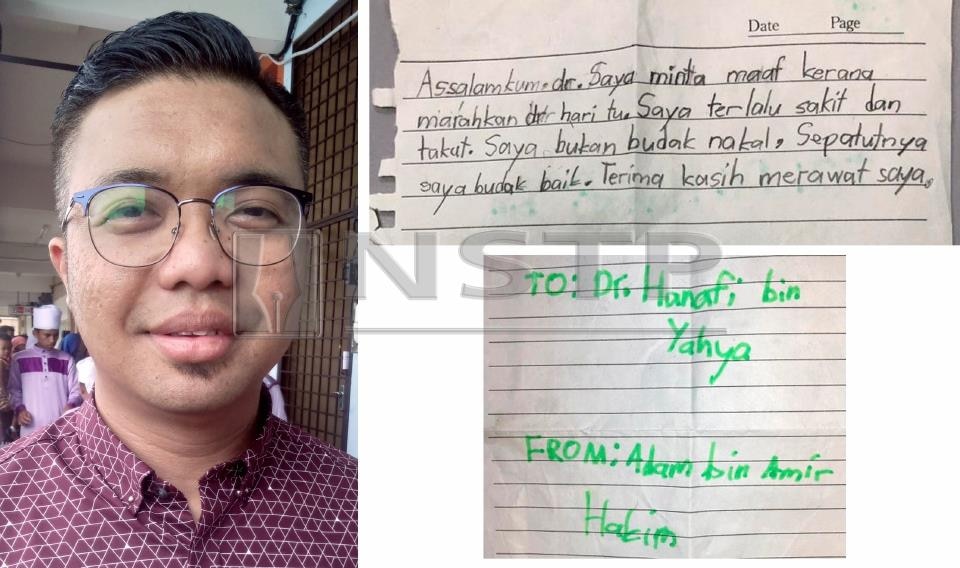 Date Page
Assalamkum, dr. Saya minta maaf kerana
marahkan dr hari tu. Saya terlalu sakit dan
takut. Saya bukan budak nakal, Sepatutnya
saya budak baik. Terima kasih merawat saya,
NSTP
TO: Dr. Hanafi bin
Yahya
FROM: Adam bin Amir
Hakim